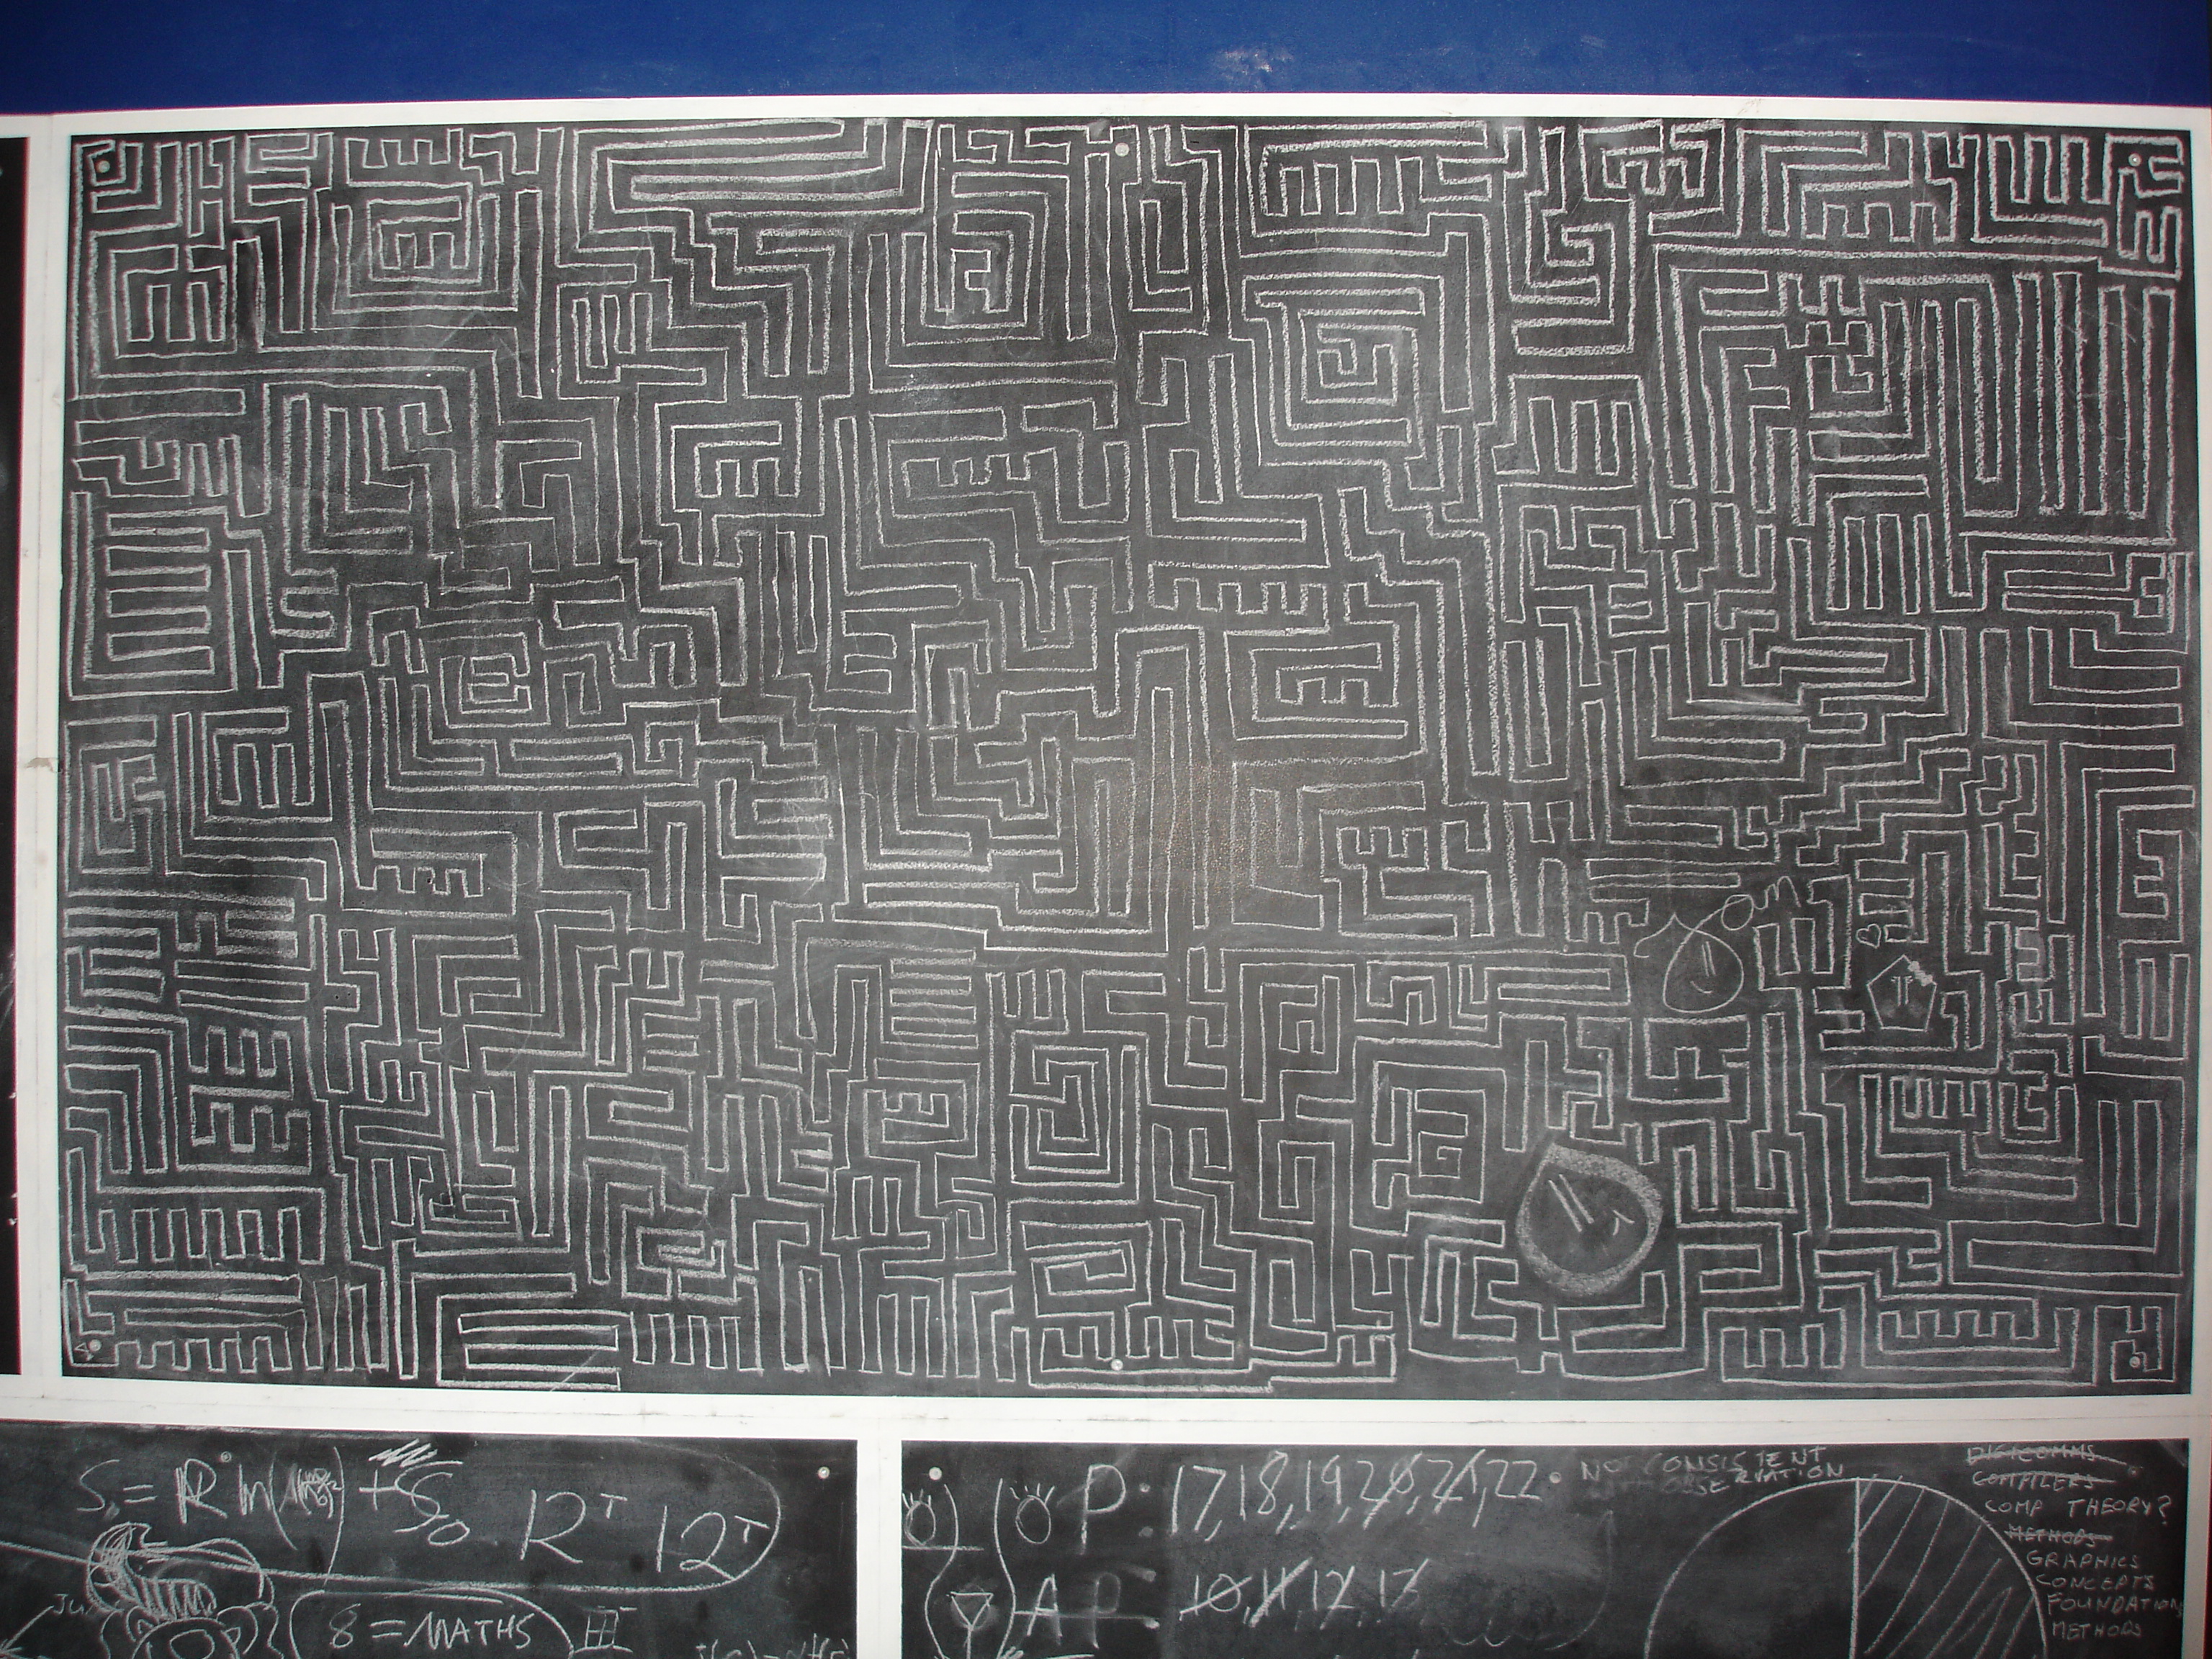 Sam
π
S = R ln( ) + S₀ R^T 12^T
8 = MATHS III
P: 17, 18, 19, 20, 21, 22
A P: 10, 11, 12, 13
NOT CONSISTENT
OBSERVATION
DIGICOMMS
COMPILERS
COMP THEORY?
METHODS
GRAPHICS
CONCEPTS
FOUNDATION
METHODS